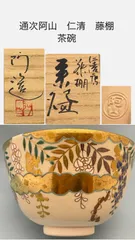 通次阿山　仁清　藤棚
茶碗
阿山造
仁清
藤棚
茶碗